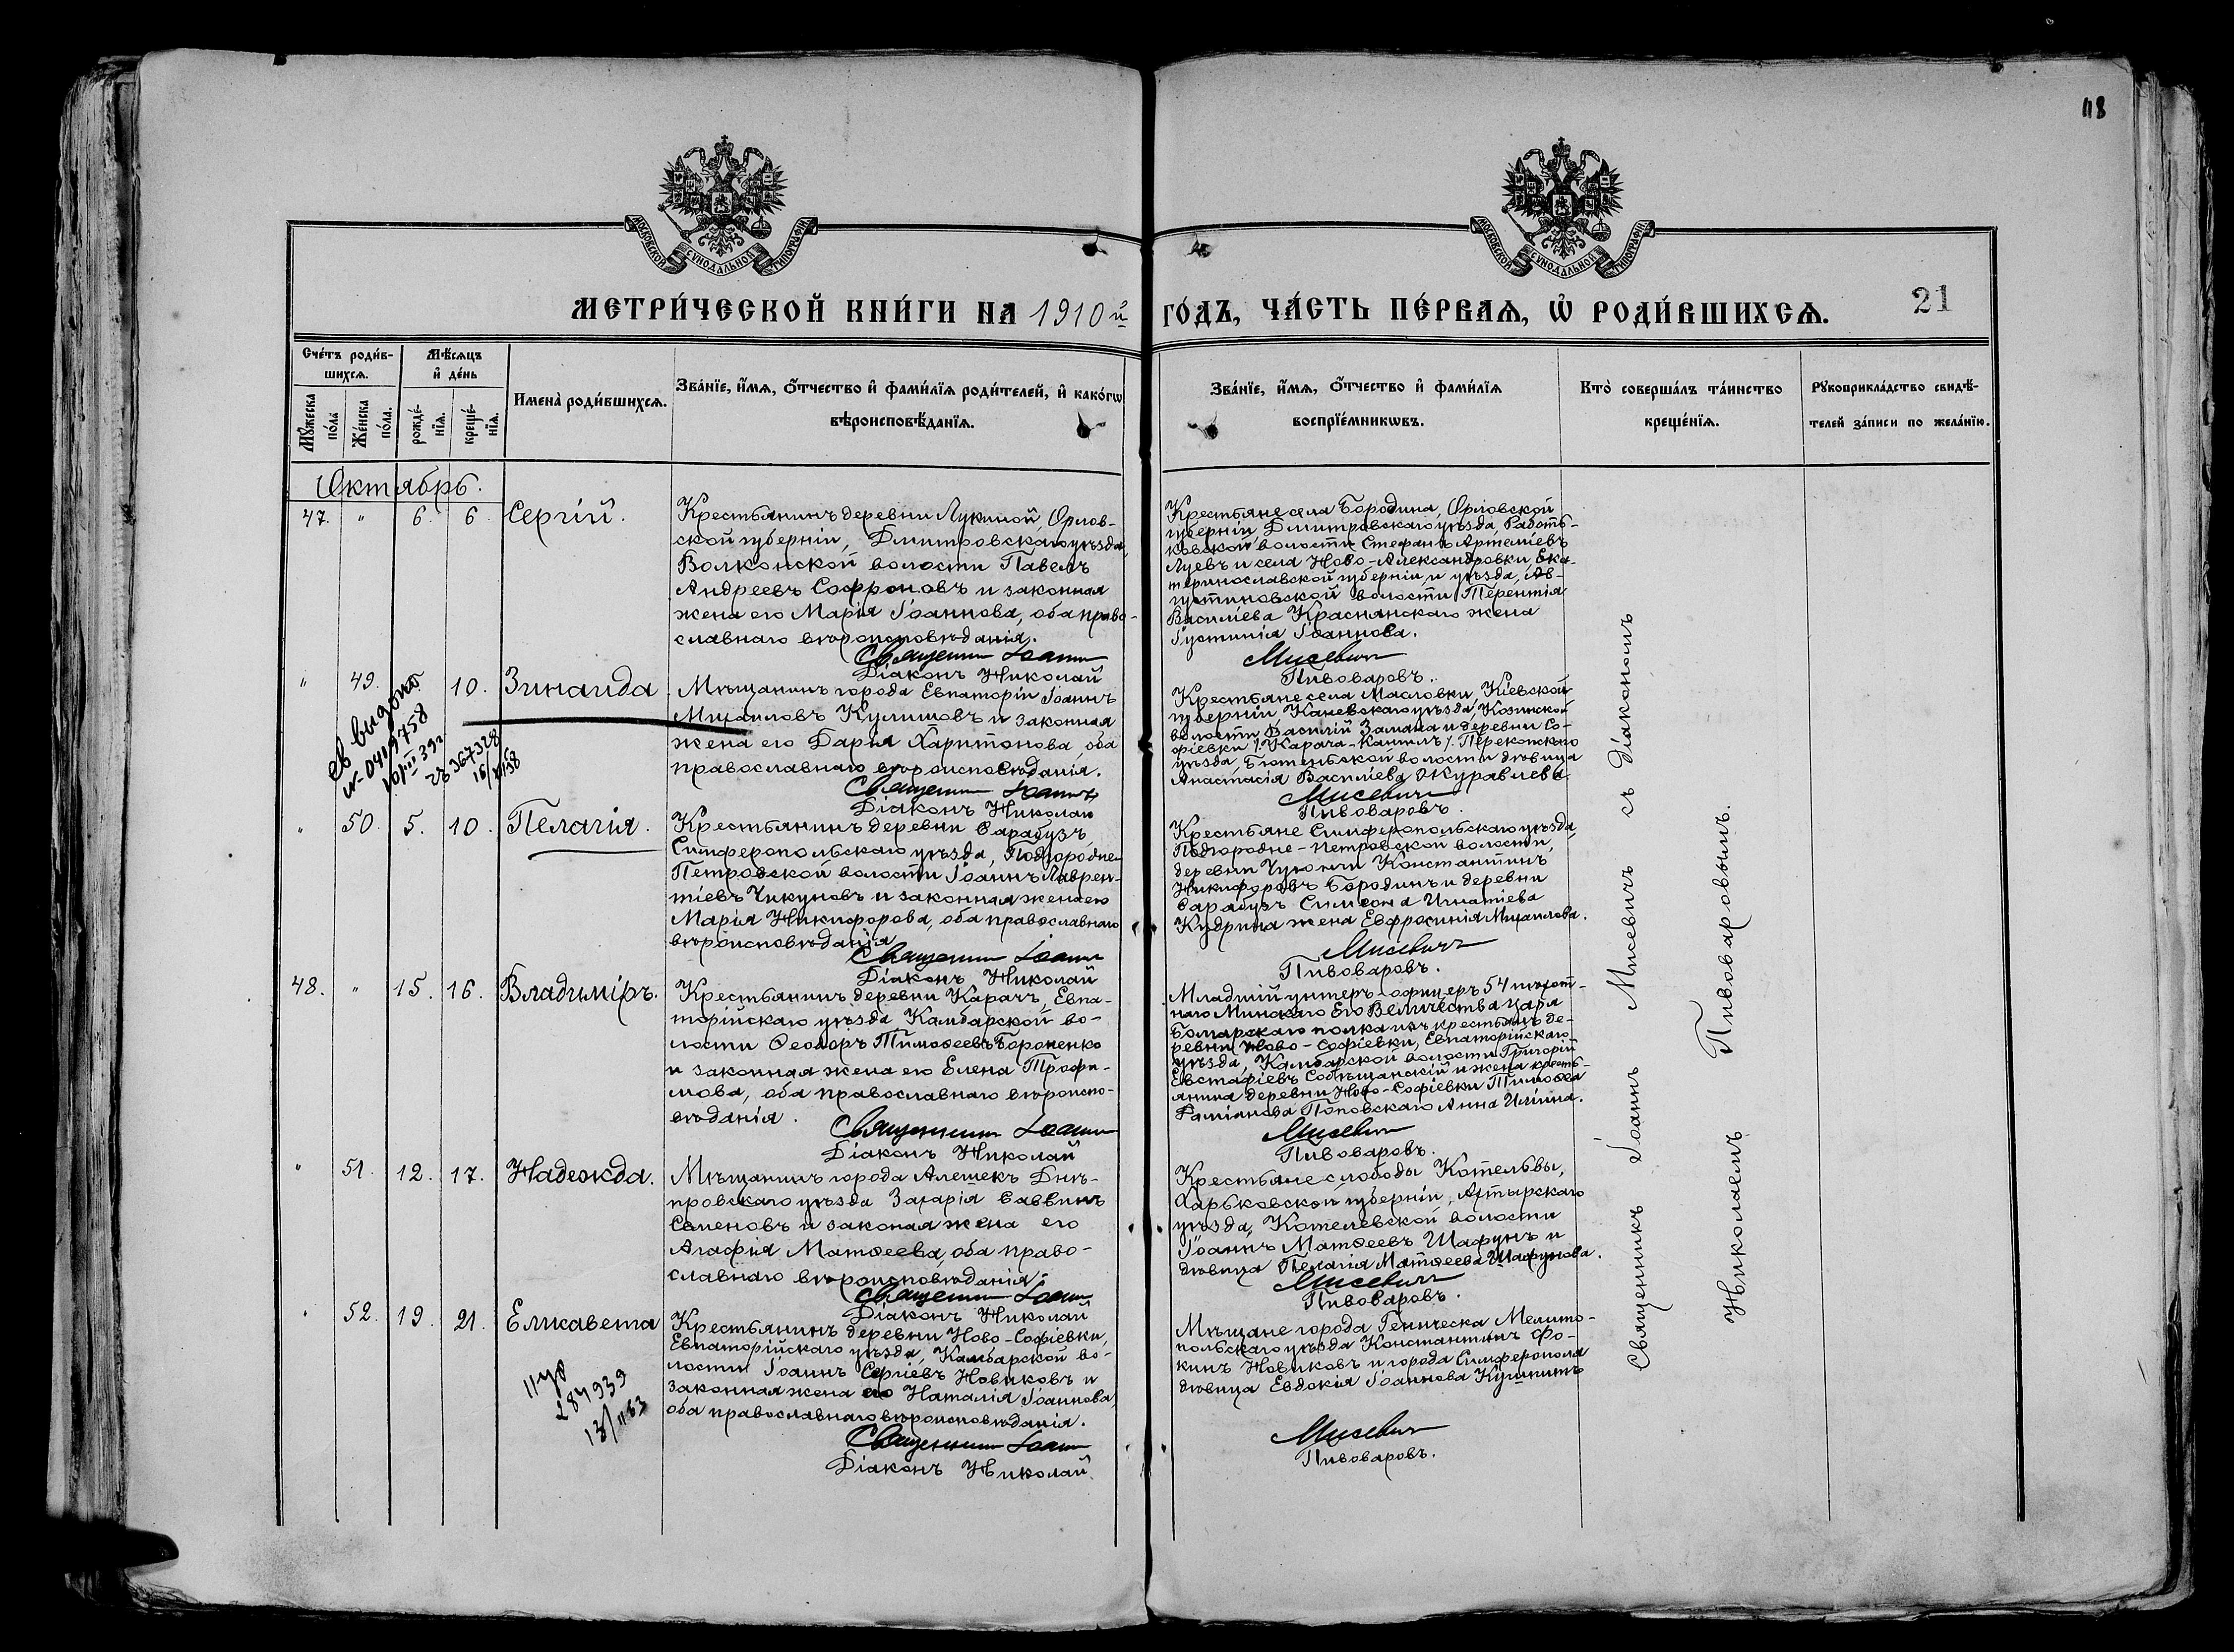 118
МОСКОВСКОЙ СУНОДАЛЬНОЙ ТИПОГРАФІИ.
МОСКОВСКОЙ СУНОДАЛЬНОЙ ТИПОГРАФІИ.
МЕТРИ́ЧЕСКОЙ КНИ́ГИ НА 1910й ГО́ДЪ, ЧА́СТЬ ПЕ́РВАѦ, Ѡ҆ РОДИ́ВШИХСѦ. 21
Сче́тъ роди́в-
шихсѧ.
Мꙋ́жеска
по́ла
Же́нска
по́ла.
Мѣ́сѧцъ
и҆ де́нь
рожде́-
нїѧ.
креще́-
нїѧ.
Имена̀ роди́вшихсѧ.
Зва́нїе, и҆́мѧ, ѻ҆́тчество и҆ фами́лїѧ роди́телей, и҆ како́гѡ
вѣроисповѣ́данїѧ.
Зва́нїе, и҆́мѧ, ѻ҆́тчество и҆ фами́лїѧ
воспрїе́мникѡвъ.
Кто̀ соверша́лъ та́инство
креще́нїѧ.
Рꙋкоприкла́дство свидѣ́-
телей за́писи по жела́нїю.
Октябрь.
47. " 6. 6. Сергій.
Крестьянинъ деревни Лукиной, Орлов-
ской губерніи, Дмитровскаго уѣзда,
Волконской волости Павелъ
Андреевъ Софроновъ и законная
жена его Марія Іоаннова, оба право-
славнаго вѣроисповѣданія.
Священникъ Іоаннъ
Діаконъ Николай
Крестьяне села Бородина, Орловской
губерніи, Дмитровскаго уѣзда, Работь-
ковской волости Стефанъ Артеміевъ
Луевъ и села Ново-Александровки, Ека-
теринославской губерніи, и уѣзда, Ав-
густиновской волости Терентія
Василіева Краснянскаго жена
Іустинія Іоаннова.
Мисевичъ
Пивоваровъ.
" 49. 10. Зинаида
Мѣщанинъ города Евпаторіи Іоаннъ
Михаиловъ Кулишовъ и законная
жена его Дарія Харитонова, оба
православнаго вѣроисповѣданія.
Священникъ Іоаннъ
Діаконъ Николай
Крестьяне села Масловки, Кіевской
губерніи, Каневскаго уѣзда, Козинской
волости Василій Замана и деревни Со-
фіевки /Карача-Кангилъ/ Перекопскаго
уѣзда, Бютеньской волости дѣвица
Анастасія Василіева Журавлева
Мисевичъ
Пивоваровъ.
св выдано
№ 0419758
10/III 39г
367328
" 50. 5. 10. Пелагія.
Крестьянинъ деревни Сарабузъ
Симферопольскаго уѣзда, Подгородне-
Петровской волости Іоаннъ Лаврен-
тіевъ Чикуновъ и законная жена его
Марія Никифорова, оба православнаго
вѣроисповѣданія
Священникъ Іоаннъ
Діаконъ Николай
Крестьяне Симферопольскаго уѣзда,
Подгородне-Петровской волости,
деревни Чуюнчи Константинъ
Никифоровъ Бородинъ и деревни
Сарабузъ Симеона Игнатіева
Кудрина жена Евфросинія Михаилова.
Мисевичъ
Пивоваровъ.
48. " 15. 16. Владиміръ.
Крестьянинъ деревни Карачъ, Евпа-
торійскаго уѣзда Камбарской во-
лости Ѳеодоръ Тимоѳеевъ Бороненко
и законная жена его Елена Трофи-
мова, оба православнаго вѣроиспо-
вѣданія.
Священникъ Іоаннъ
Діаконъ Николай
Младшій унтеръ-офицеръ 54 пѣхот-
наго Минскаго Его Величества Царя
Болгарскаго полка изъ крестьянъ де-
ревни Ново-Софіевки, Евпаторійскаго
уѣзда, Камбарской волости Григорій
Евстафіевъ Собѣщанскій и жена кресть-
янина деревни Ново-Софіевки Тимоѳея
Даміанова Поповскаго Анна Иліина.
Мисевичъ
Пивоваровъ.
" 51. 12. 17. Надежда.
Мѣщанинъ города Алешекъ Днѣ-
провскаго уѣзда Захарія Саввинъ
Семеновъ и законая жена его
Агафія Матѳеева, оба право-
славнаго вѣроисповѣданія.
Священникъ Іоаннъ
Діаконъ Николай
Крестьяне слободы Котельвы,
Харьковской губерніи, Ахтырскаго
уѣзда, Котелевской волости
Іоаннъ Матѳеевъ Шафунъ и
дѣвица Пелагія Матѳеева Шафунова.
Мисевичъ
Пивоваровъ.
" 52. 19. 21. Елисавета
Крестьянинъ деревни Ново-Софіевки,
Евпаторійскаго уѣзда, Камбарской во-
лости Іоаннъ Сергіевъ Новиковъ и
законная жена его Наталія Іоаннова,
оба православнаго вѣроисповѣданія.
Священникъ Іоаннъ
Діаконъ Николай
Мѣщане города Геническа Мелито-
польскаго уѣзда Константинъ Фо-
кинъ Новиковъ и города Симферополя
дѣвица Евдокія Іоаннова Кушнитъ
Мисевичъ
Пивоваровъ.
284939
Священникъ Іоаннъ Мисевичъ съ діакономъ
Николаемъ Пивоваровымъ.